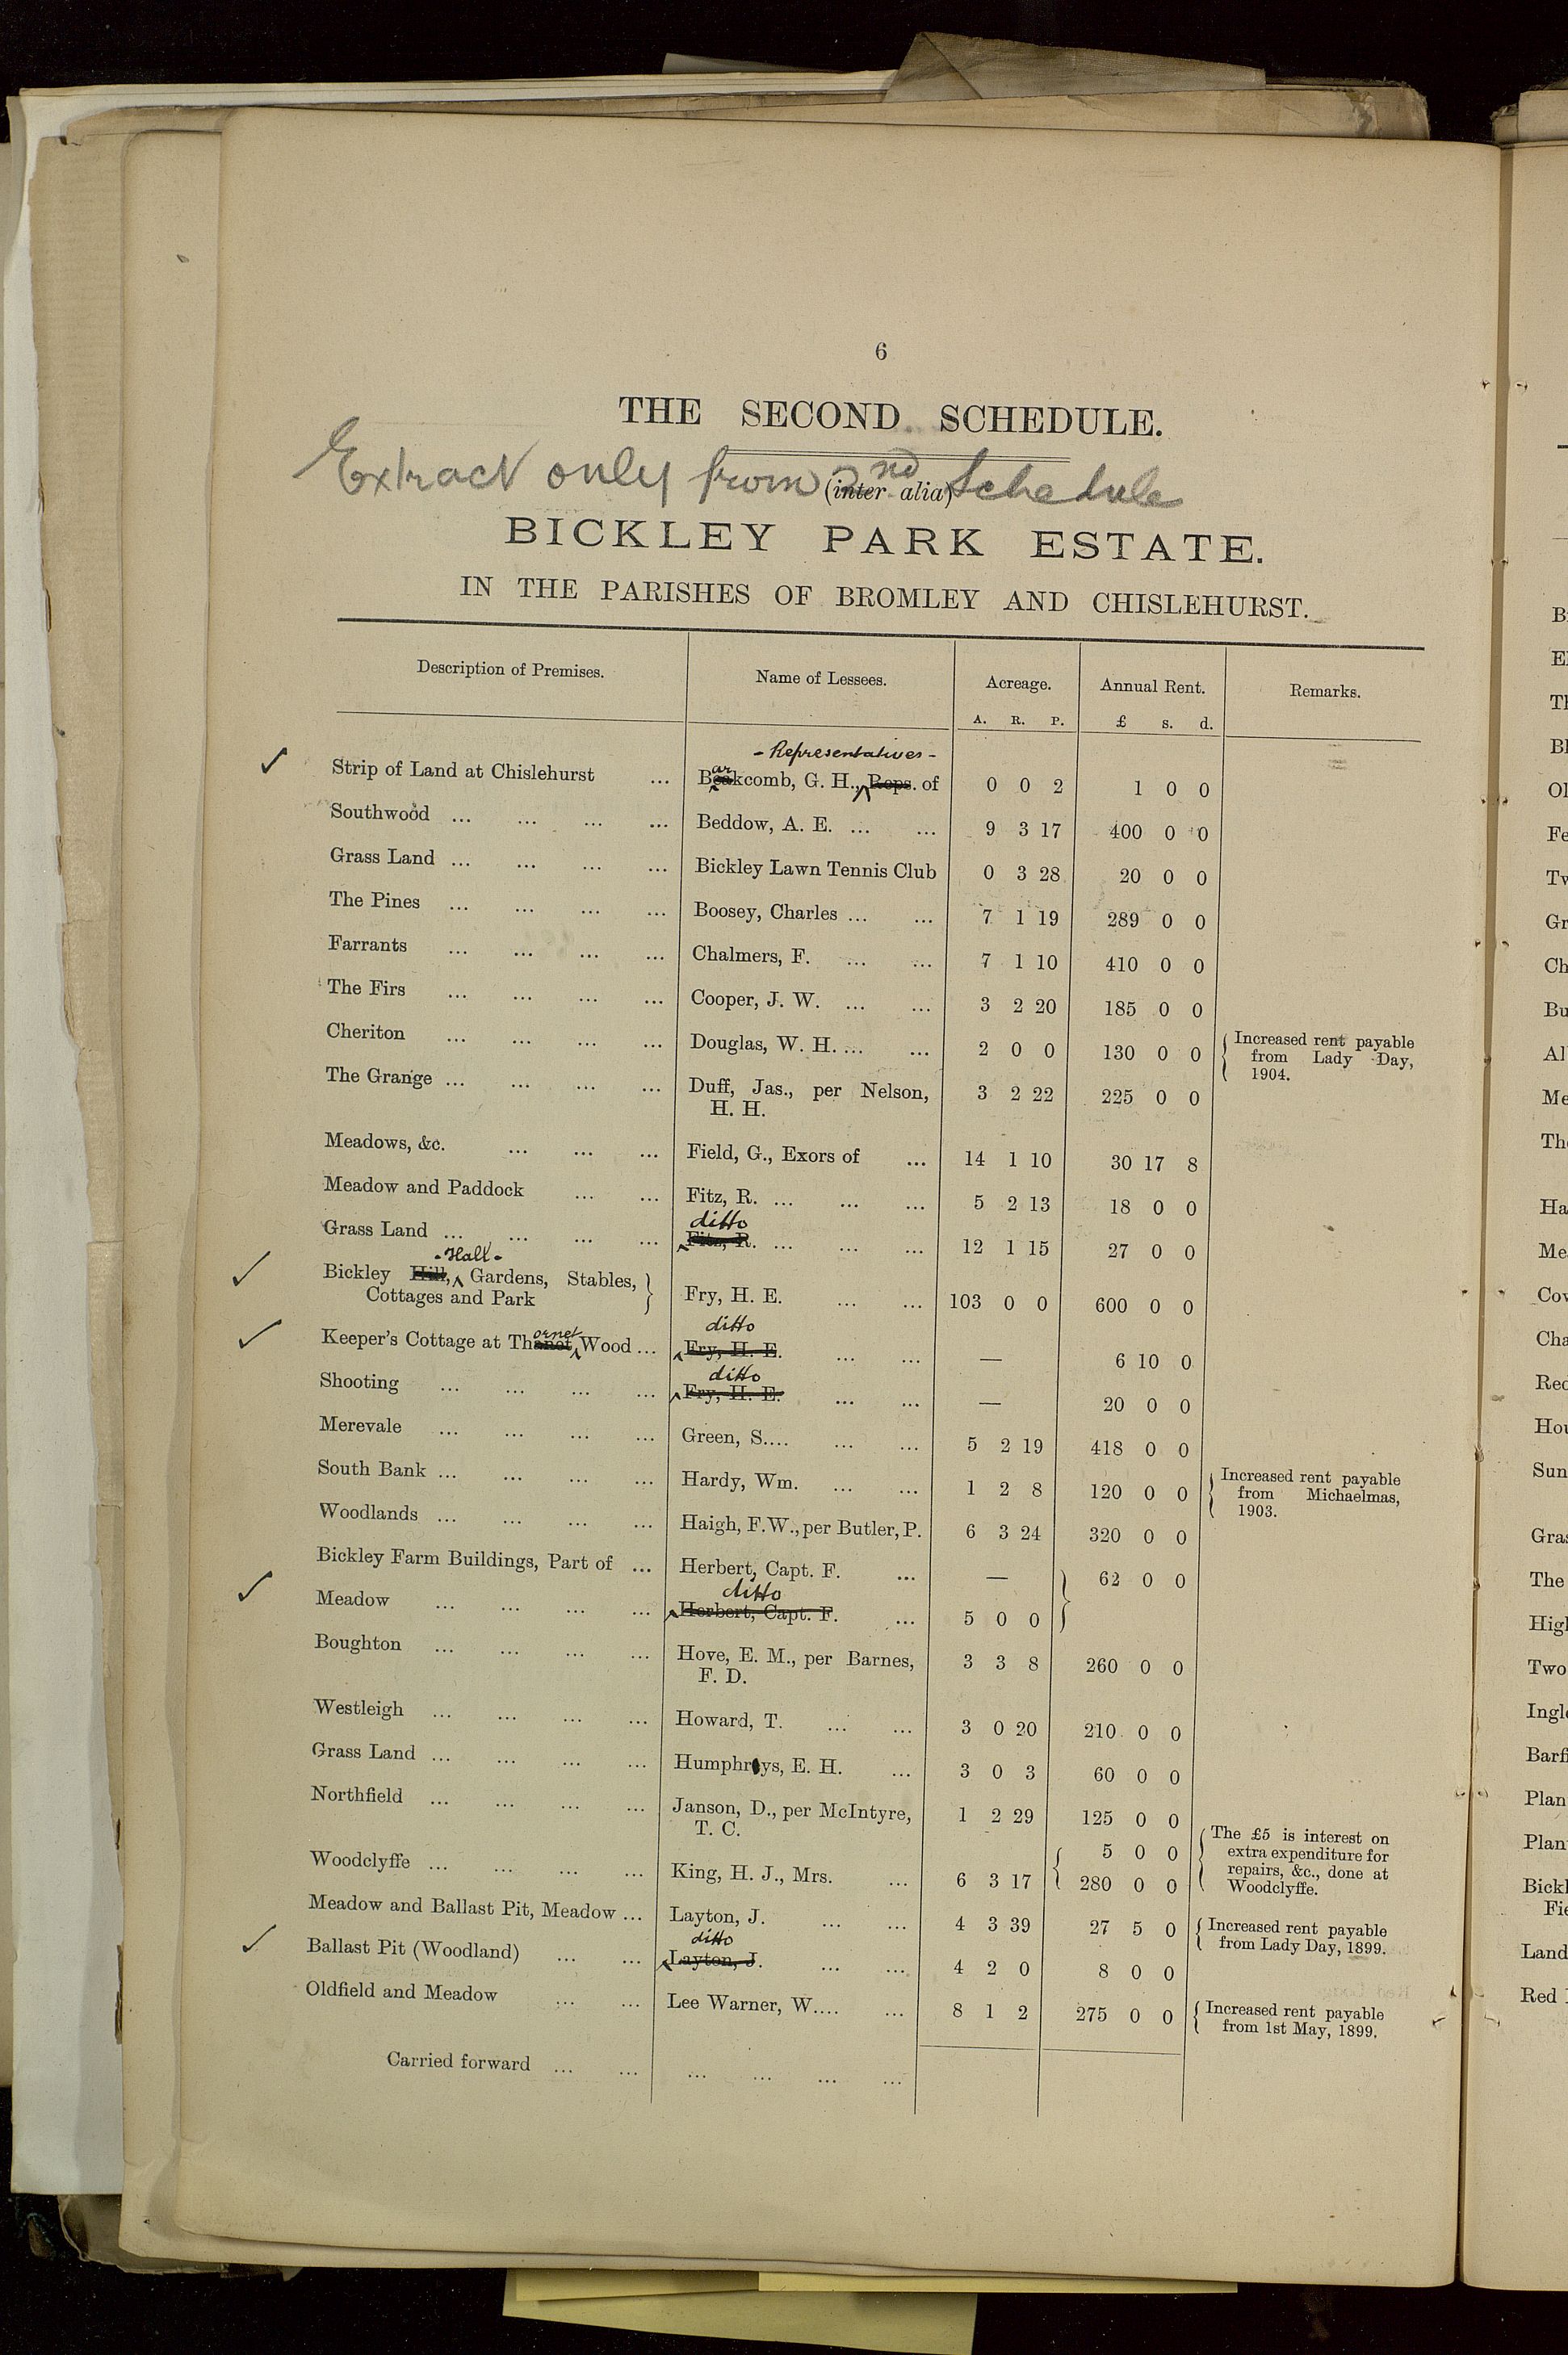 6
THE SECOND SCHEDULE.
Extract only from 2nd Schedule
(inter alia)
BICKLEY PARK ESTATE.
IN THE PARISHES OF BROMLEY AND CHISLEHURST.
Description of Premises. Name of Lessees. Acreage. Annual Rent. Remarks.
A. R. P. £ s. d.
- Representatives -
ar
✓ Strip of Land at Chislehurst ... Beakcomb, G. H., Reps. of 0 0 2 1 0 0
Southwood ... ... ... ... Beddow, A. E. ... ... 9 3 17 400 0 0
Grass Land ... ... ... ... Bickley Lawn Tennis Club 0 3 28 20 0 0
The Pines ... ... ... ... Boosey, Charles ... ... 7 1 19 289 0 0
Farrants ... ... ... ... Chalmers, F. ... ... 7 1 10 410 0 0
The Firs ... ... ... ... Cooper, J. W. ... ... 3 2 20 185 0 0
Cheriton ... ... ... ... Douglas, W. H. ... ... 2 0 0 130 0 0 Increased rent payable
from Lady Day,
1904.
The Grange ... ... ... ... Duff, Jas., per Nelson, 3 2 22 225 0 0
H. H.
Meadows, &c. ... ... ... Field, G., Exors of ... 14 1 10 30 17 8
Meadow and Paddock ... ... Fitz, R. ... ... ... 5 2 13 18 0 0
ditto
Grass Land ... ... ... ... Fitz, R. ... ... ... 12 1 15 27 0 0
- Hall -
✓ Bickley Hill, Gardens, Stables, Fry, H. E. ... ... 103 0 0 600 0 0
Cottages and Park
ornet ditto
✓ Keeper's Cottage at Thanet Wood ... Fry, H. E. ... ... — 6 10 0
ditto
Shooting ... ... ... ... Fry, H. E. ... ... — 20 0 0
Merevale ... ... ... ... Green, S.... ... ... 5 2 19 418 0 0
South Bank ... ... ... ... Hardy, Wm. ... ... 1 2 8 120 0 0 Increased rent payable
from Michaelmas,
1903.
Woodlands ... ... ... ... Haigh, F.W., per Butler, P. 6 3 24 320 0 0
Bickley Farm Buildings, Part of ... Herbert, Capt. F. ... — 62 0 0
ditto
✓ Meadow ... ... ... ... Herbert, Capt. F. ... 5 0 0
Boughton ... ... ... ... Hove, E. M., per Barnes, 3 3 8 260 0 0
F. D.
Westleigh ... ... ... ... Howard, T. ... ... 3 0 20 210 0 0
Grass Land ... ... ... ... Humphreys, E. H. ... 3 0 3 60 0 0
Northfield ... ... ... ... Janson, D., per McIntyre, 1 2 29 125 0 0
T. C.
5 0 0 The £5 is interest on
extra expenditure for
repairs, &c., done at
Woodclyffe.
Woodclyffe ... ... ... ... King, H. J., Mrs. ... 6 3 17 280 0 0
Meadow and Ballast Pit, Meadow ... Layton, J. ... ... 4 3 39 27 5 0 Increased rent payable
from Lady Day, 1899.
ditto
✓ Ballast Pit (Woodland) ... ... Layton, J. ... ... 4 2 0 8 0 0
Oldfield and Meadow ... ... Lee Warner, W.... ... 8 1 2 275 0 0 Increased rent payable
from 1st May, 1899.
Carried forward ... ... ... ... ... ...